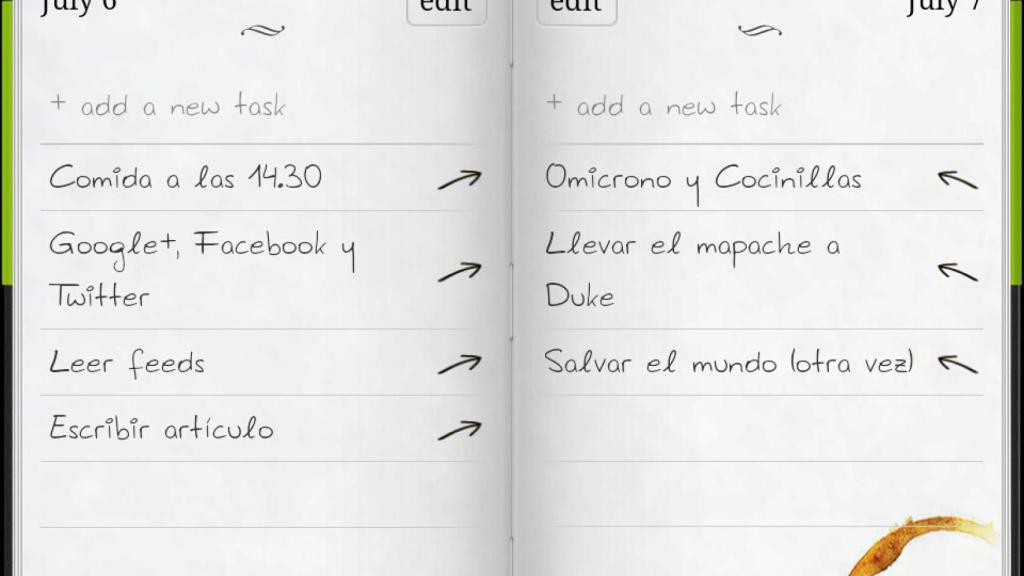 July 6
edit
+ add a new task
Comida a las 14.30
Google+, Facebook y
Twitter
Leer feeds
Escribir artículo
edit
July 7
+ add a new task
Omicrono y Cocinillas
Llevar el mapache a
Duke
Salvar el mundo (otra vez)